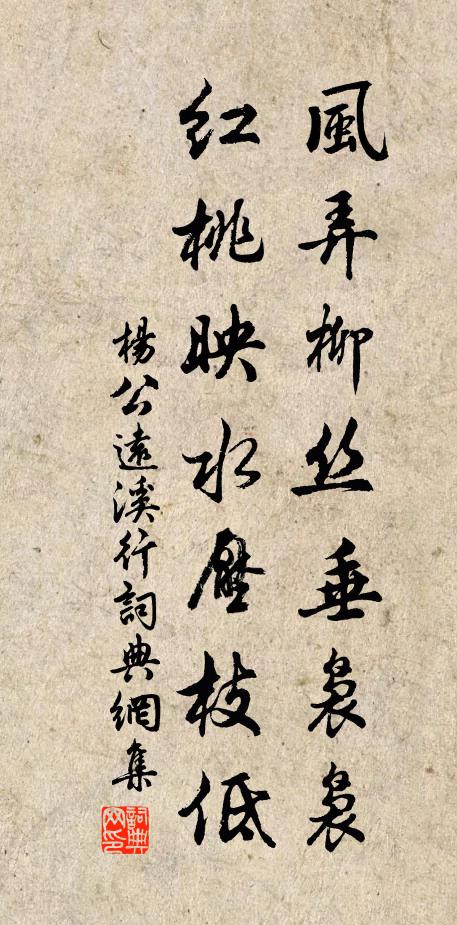 風弄柳丝垂裊裊
紅桃映水壓枝低
楊公遠溪行詞典網集
詞典网印